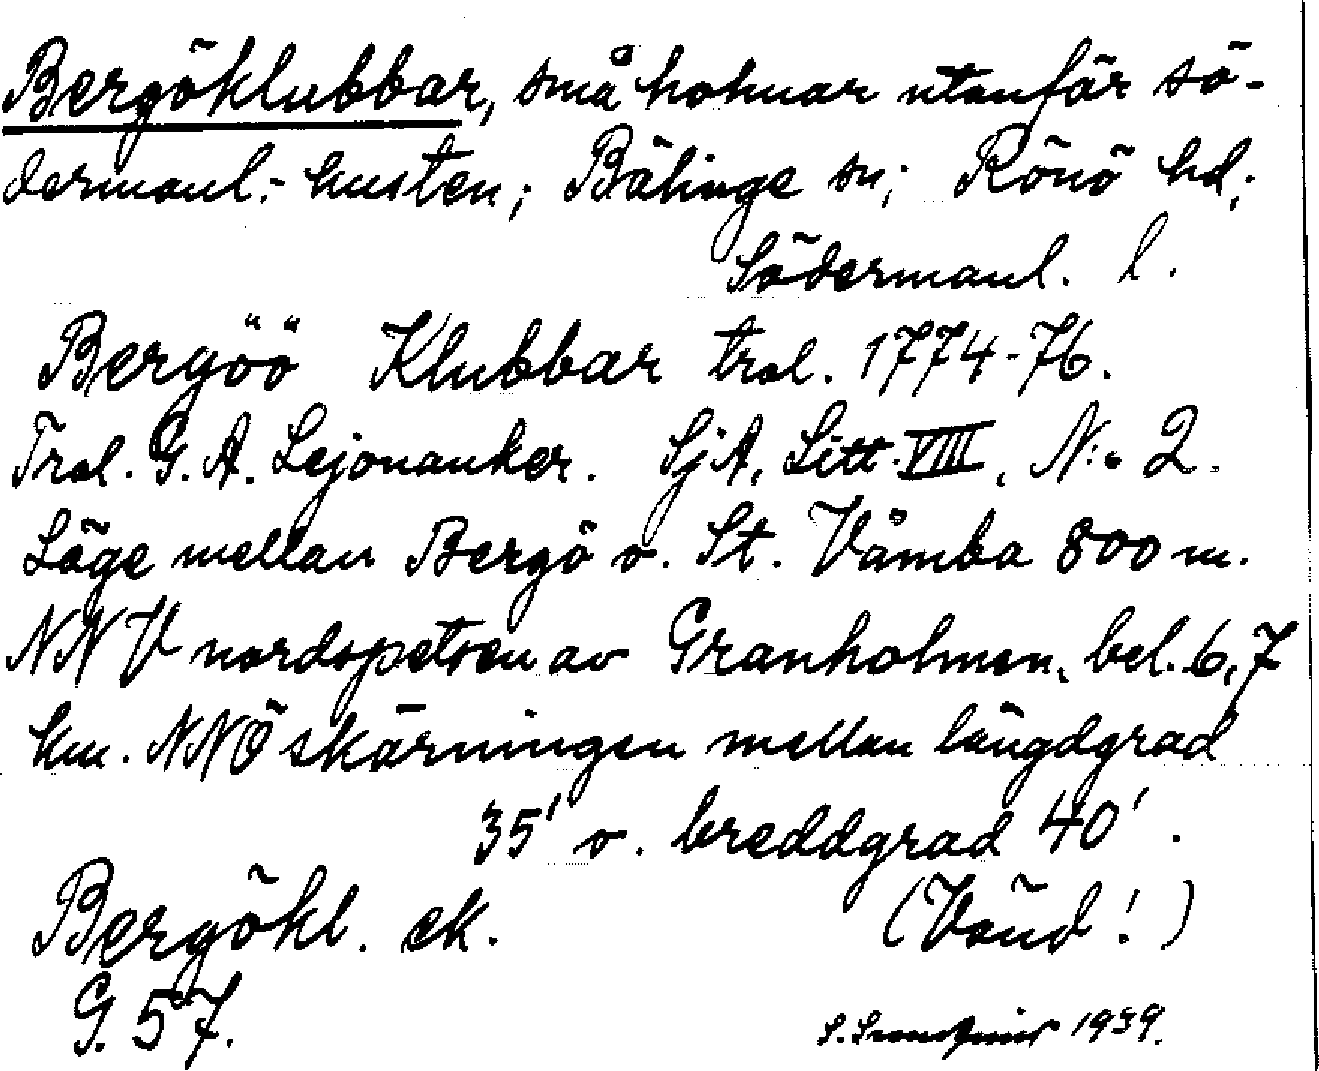 Bergöklubbar, små holmar utanför sö-
dermanl.- kusten; Bälinge sn; Rönö hd;
Södermanl. l.
Bergöö Klubbar trol. 1774-76.
Trol. G. A. Lejonanker. SjA, Litt. VIII, N:o 2.
Läge mellan Bergö o. St. Våmba 800 m.
NNV nordspetsen av Granholmen, bel. 6,7
km. NNÖ skärningen mellan längdgrad
35' o. breddgrad 40'.
Bergökl. ek. (Vänd!)
G. 57.
S. 1939.